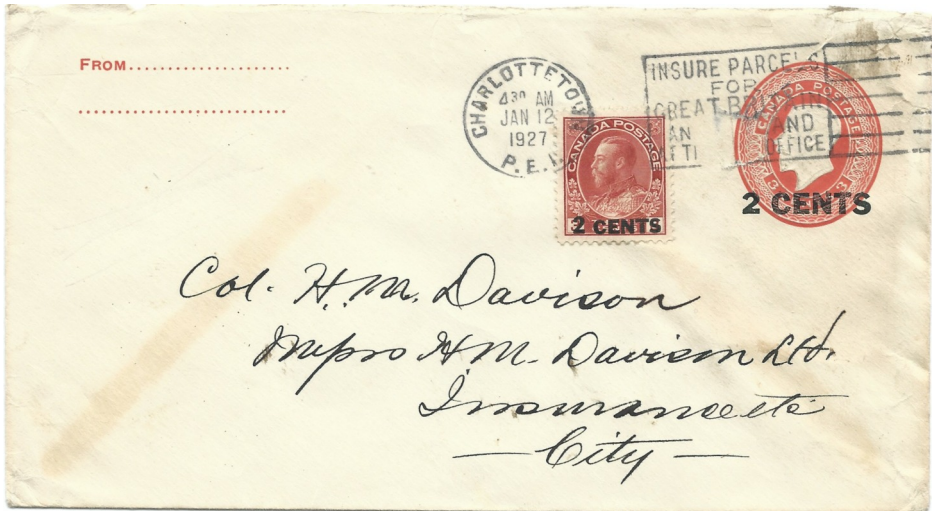 FROM
CHARLOTTETOWN
4 30 AM
JAN 12
1927
P.E.I.
INSURE PARCELS
FOR
GREAT BRITAIN
AND
OFFICE
CANADA POSTAGE
2 CENTS
CANADA POSTAGE
3 3
2 CENTS
Col. H. M. Davison
Messrs H M. Davison Ltd.
Insurance etc
— City —